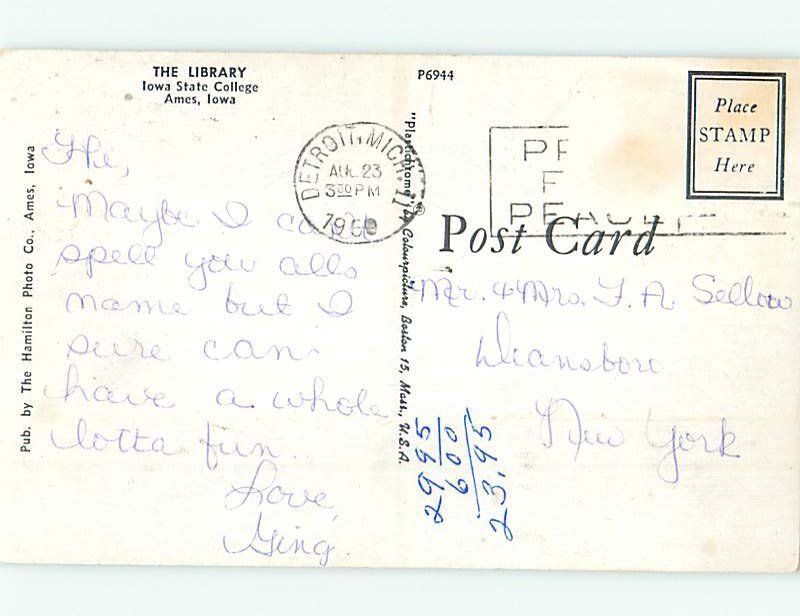 THE LIBRARY
Iowa State College
Ames, Iowa
P6944
Place
STAMP
Here
DETROIT, MICH.
AUG. 23
3 30 PM
1960
P
F
PEACE
Post Card
Pub. by The Hamilton Photo Co., Ames, Iowa
"Plastichrome" ® by Colourpicture, Boston 15, Mass., U.S.A.
Hi,
Maybe I can't
spell you alls
name but I
sure can
have a whole
lotta fun
Love,
Ging.
Mr. & Mrs. F. A. Sellow
Deansboro
New York
2995
600
23.95